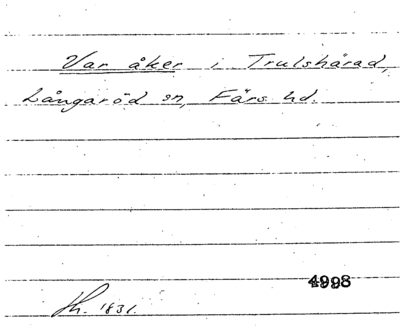 Var åker i Trulshärad,
Långaröd sn, Färs hd.
4998
Hh. 1831.